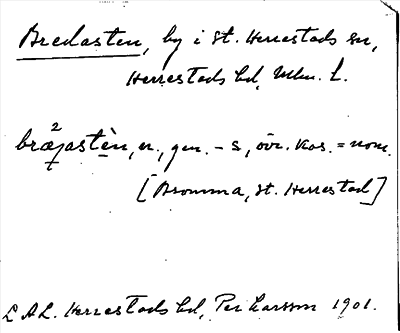 Bredasten, by i St. Herrestads sn,
Herrestads hd, Mlm. L.
bræ²jastèn, n., gen. -s, övr. kas. = nom.
[Bromma, St. Herrestad]
LAL. Herrestads hd, Per Larsson 1901.